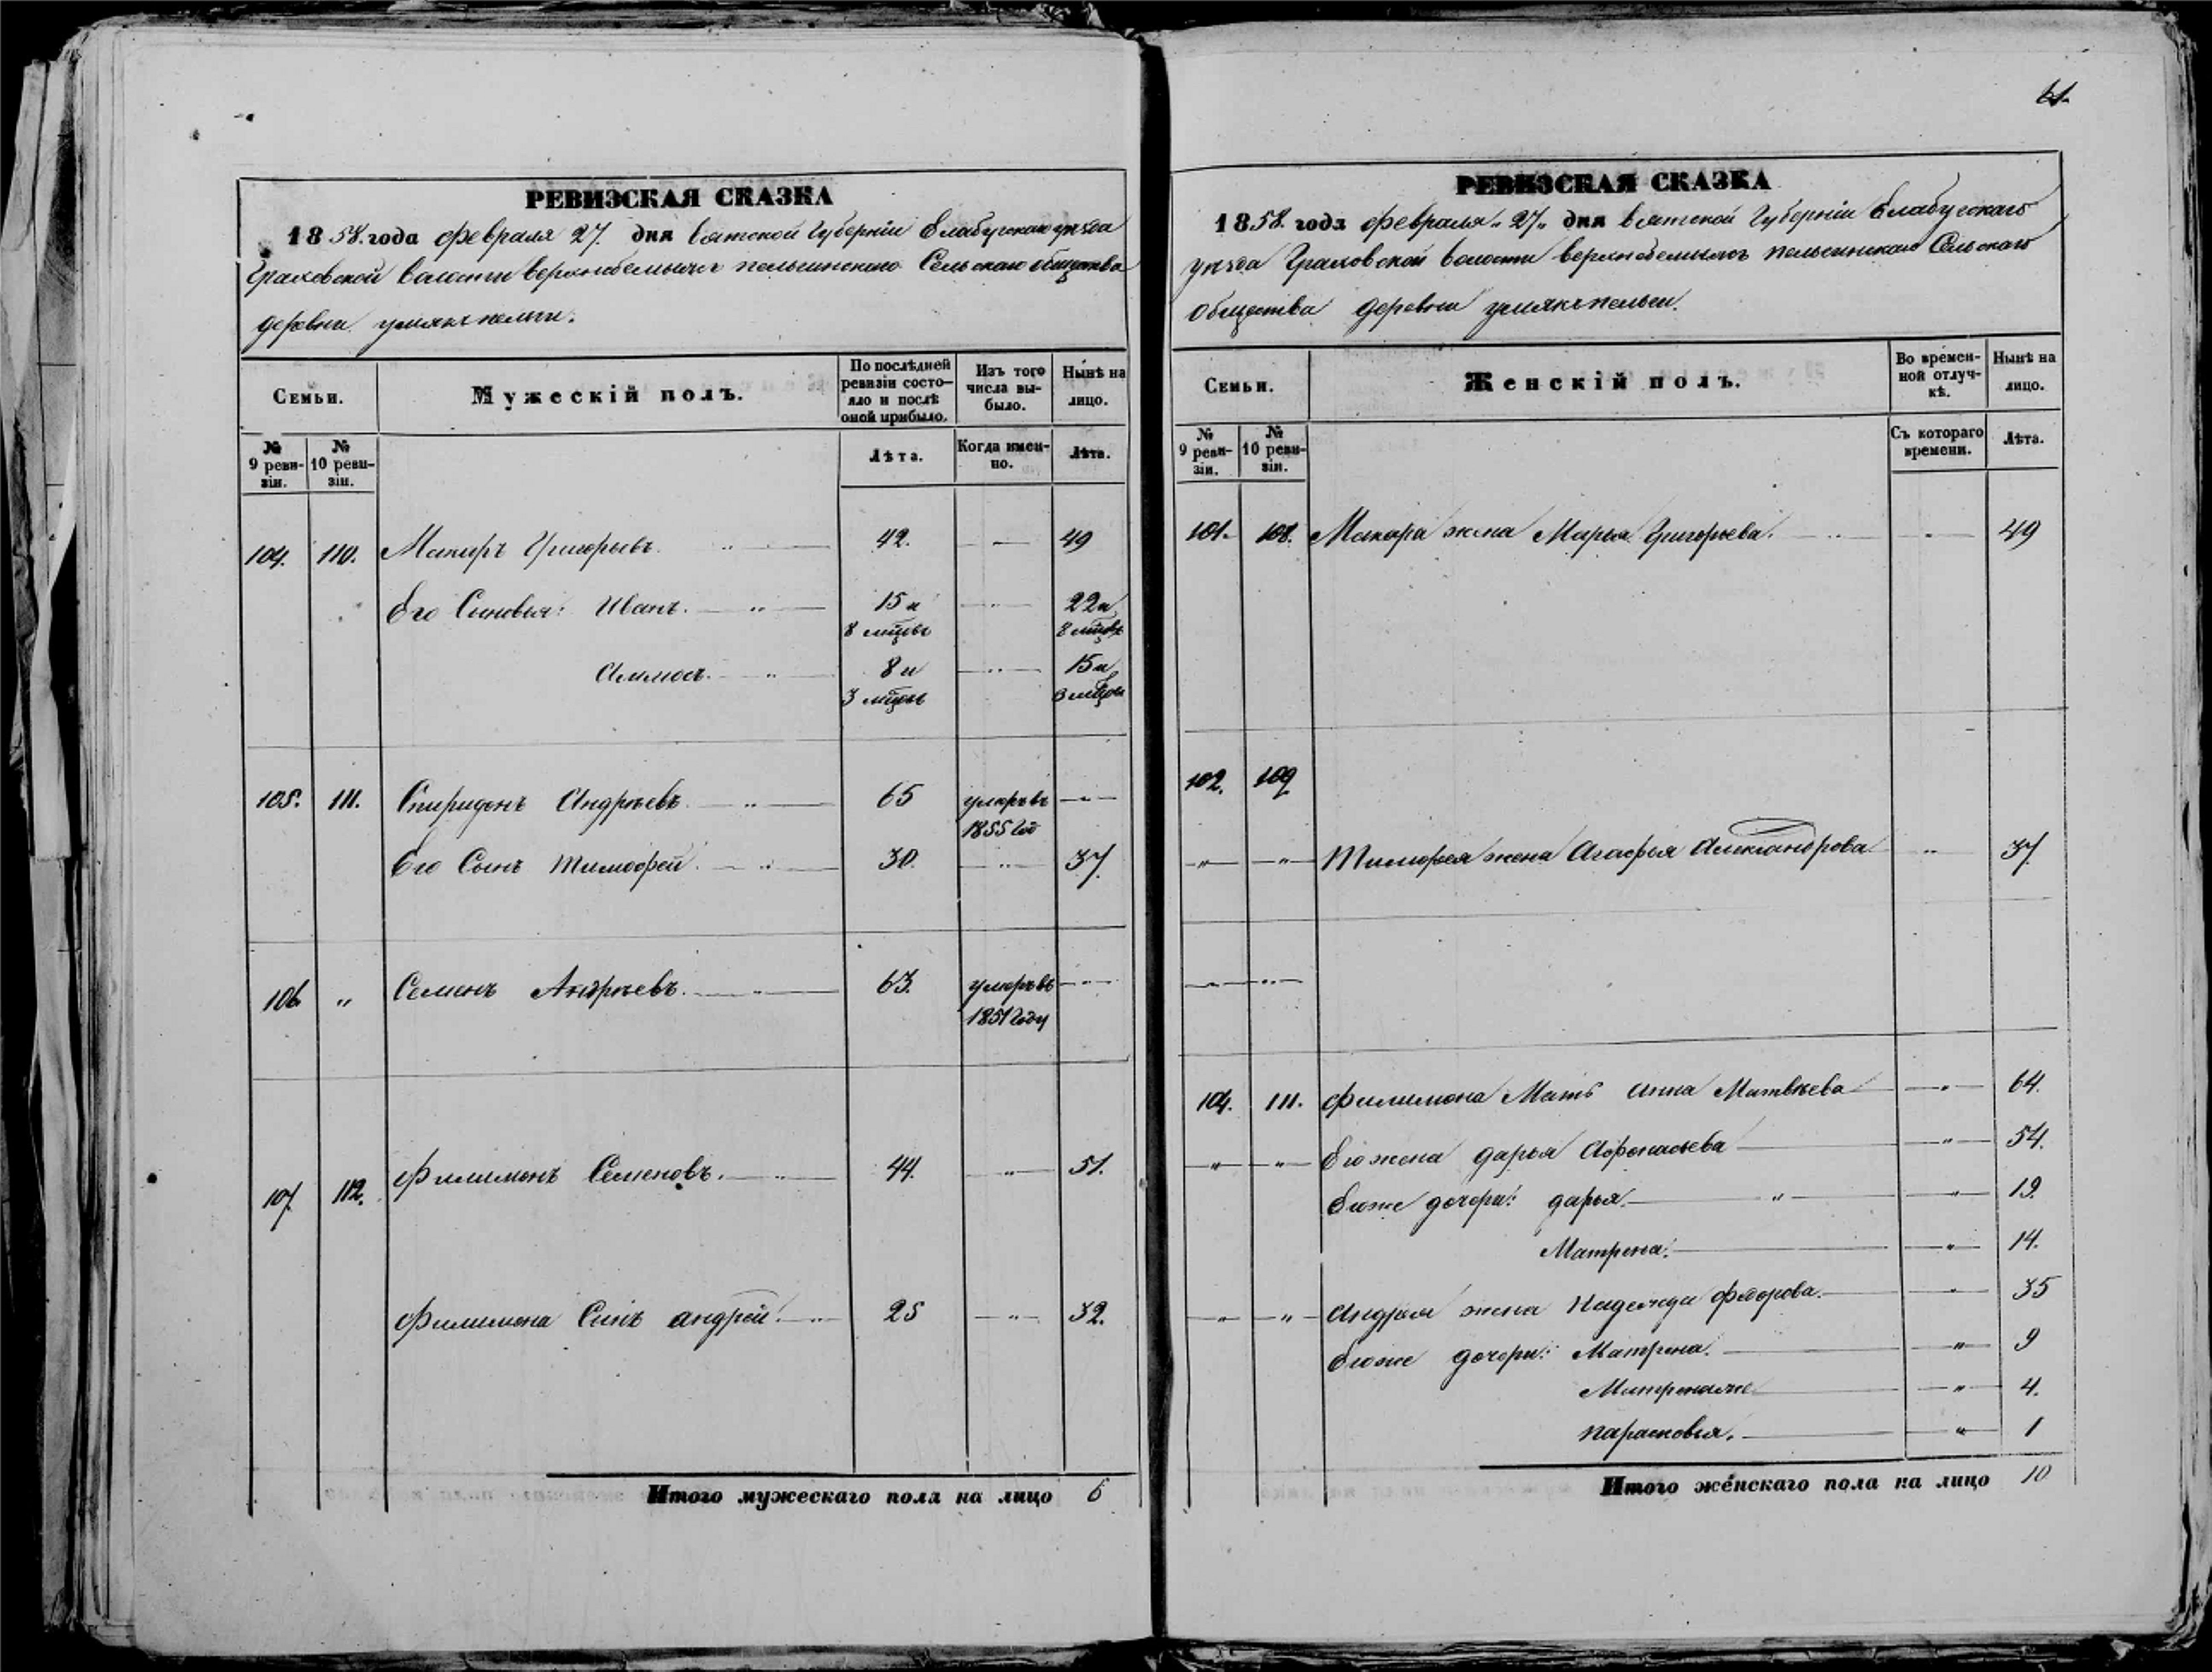 РЕВИЗСКАЯ СКАЗКА
1858. года февраля 27. дня вятской Губерніи Елабугскаго уѣзда
Граховской волости верхнебемыжъ пельгинскаго Сельскаго общества
деревни умякъ пельги.
Семьи.
Мужескій полъ.
По послѣдней ревизіи состояло и послѣ оной прибыло.
Изъ того числа выбыло.
Нынѣ на лицо.
№ 9 ревизіи.
№ 10 ревизіи.
Лѣта.
Когда именно.
Лѣта.
104. 110. Макаръ Григорьевъ. 42. 49
Его Сыновья: Иванъ. 15 и 22 и
8 мцовъ 8 мцовъ
8 и 15 и
3 мцовъ 3 мцовъ
105. 111. Спиридонъ Андрѣевъ. 65 умеръ въ
1855 год
Его Сынъ Тимофей. 30. 37.
106 " Семенъ Андрѣевъ. 63. умеръ въ
1851 году
107. 112. Филимонъ Семеновъ. 44. 51.
Филимона Сынъ андрей. 25 32.
Итого мужескаго пола на лицо 6
61.
РЕВИЗСКАЯ СКАЗКА
1858. года февраля 27 дня вятской Губерніи Елабугскаго
уѣзда Граховской волости верхнебемыжъ пельгинскаго Сельскаго
общества деревни умякъ пельги.
Семьи.
Женскій полъ.
Во временной отлучкѣ.
Нынѣ на лицо.
№ 9 ревизіи.
№ 10 ревизіи.
Съ котораго времени.
Лѣта.
101. 108. Макара жена Марья Григорьева. 49
102. 109
" " Тимофея жена Агафья Александрова 37.
104. 111. Филимона Мать Анна Матвѣева 64.
" " Его жена дарья Афонасьева 54.
Его же дочери: дарья. 19.
Матрена. 14.
" " Андрея жена Надежда Федорова. 35
Его же дочери: Матрена. 9
Матрена же 4.
парасковья. 1
Итого женскаго пола на лицо 10